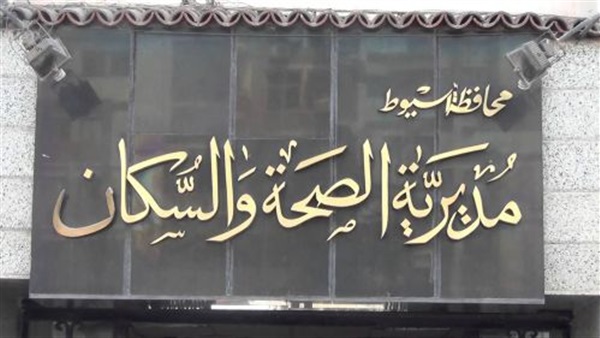 محافظة اسيوط
مديرية الصحة والسكان